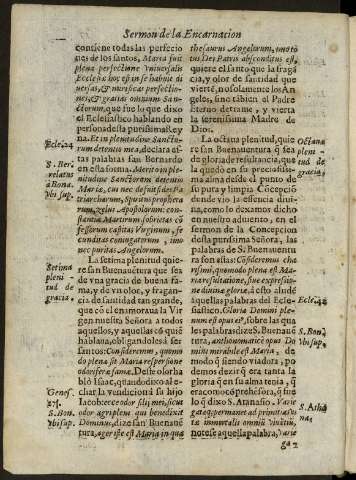 Sermon de la Encarnacion
contiene todas las perfecio
nes de los santos, Maria fuit
plena perfectione vniuersalis
Ecclesiæ hoc est in se habuit di
uersas, & mirificas perfectio-
nes, & gratias omnium San-
ctorum, que fue lo que dixo
el Eclesiastico hablando en
persona desta purissima Rey
na. Et in plenitudine Sancto-
rum detentio mea, declara es-
tas palabras san Bernardo
en esta forma. Merito in ple-
nitudine Sanctorum detentio
Mariæ, cui nec defuit fides Pa
triarcharum, Spiritus propheta
rum, zelus Apostolorum: con-
stantia Martirum sobrietas cō
fessorum castitas Virginum, fe
cunditas coniugatorum, imo
nec puritas Angelorum.
La setima plenitud quie-
re san Buenauētura que sea
de vna gracia de buena fama,
y de vn olor, y fragan-
cia de santidad tan grande,
que cō el enamoraua la Vir
gen nuestra Señora a todos
aquellos, y aquellas cō quiē
hablaua, obligandoles à ser
santos: Consideremus, quomo
do plena sit Maria respersione
odoriferæ famæ. Deste olor ha
blò Isaac, quando dixo al e-
char la vendicion à su hijo
Iacob: ecce odor filij mei, sicut
odor agri pleni qui benedixit
Dominus, dize san Buenaué
tura, ager iste est Maria in qua
Ecle. 24
S. Ber.
relatus
à Bona.
vbi sup.
Setima
pleni
tud de
gracia.
Genes.
27.
S. Bon.
vbi sup.
thesaurus Angelorum, imo to
tus Dei Patris absconditus est,
quiere el santo que la fragā
cia, y olor de santidad que
vierte, no solamente los An-
geles, sino tābien el Padre
Eterno detrame, y vierta
la serenissima Madre de
Dios.
La octaua plenitud, quie
re san Buenauentura q̄ sea
de gloria de resultancia, que
la quedò en su preciosissi-
ma alma desde el punto de
su pura y limpia Concepciō
donde vio la essencia diui-
na, como lo dexamos dicho
en nuestro aduiento, en el
sermon de la Concepcion
desta purissima Señora, las
palabras de S. Buenauentu
ra son estas: Consideremus cha
rissimi, quomodo plena est Ma-
ria resultatione, siue expressio-
ne diuinæ gloriæ, à esto aludē
aquellas palabras del Ecle-
siastico. Gloria Domini ple-
num est opus eius, sobre las qua
les palabras dize S. Buenauē
tura, anthonomaticè opus Do
mini mirabile est Maria, de
modo q̄ siendo tu adora, po
demos dezir q̄ era tanta la
gloria q̄ en su alma tenia, q̄
era como cōprehēsora, q̄ fue
lo q̄ dixo S. Atanasio. Varie
gata permanet ad primitias vi
tæ immortalis omniū viuentiū,
notese aquella palabra, Varie
Octaua
pleni-
tud de
gracia.
Ecles. 42
S. Bon.
vbi sup.
S. Atha
na.
ga 2